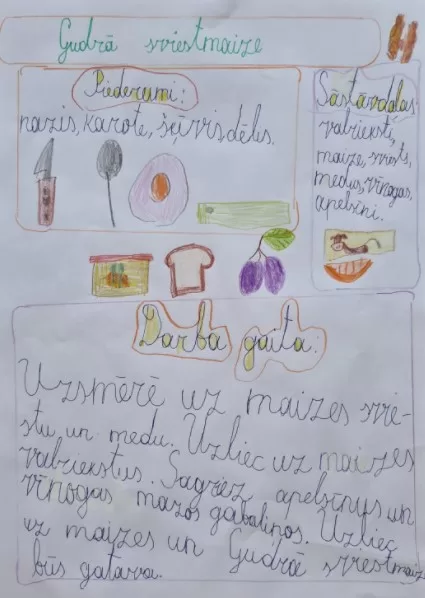 Gudrā sviestmaize
Piederumi:
nazis, karote, šķīvis, dēlis.
Sāstāvdaļas:
valrieksti,
maize, sviests,
medus, vīnogas,
apelsīni.
Darba gaita:
Uzsmērē uz maizes svie-
stu un medu. Uzliec uz maizes
valriekstus. Sagriez apelsīnus un
vīnogas mazos gabaliņos. Uzliec
uz maizes un Gudrā sviestmaize
būs gatava.